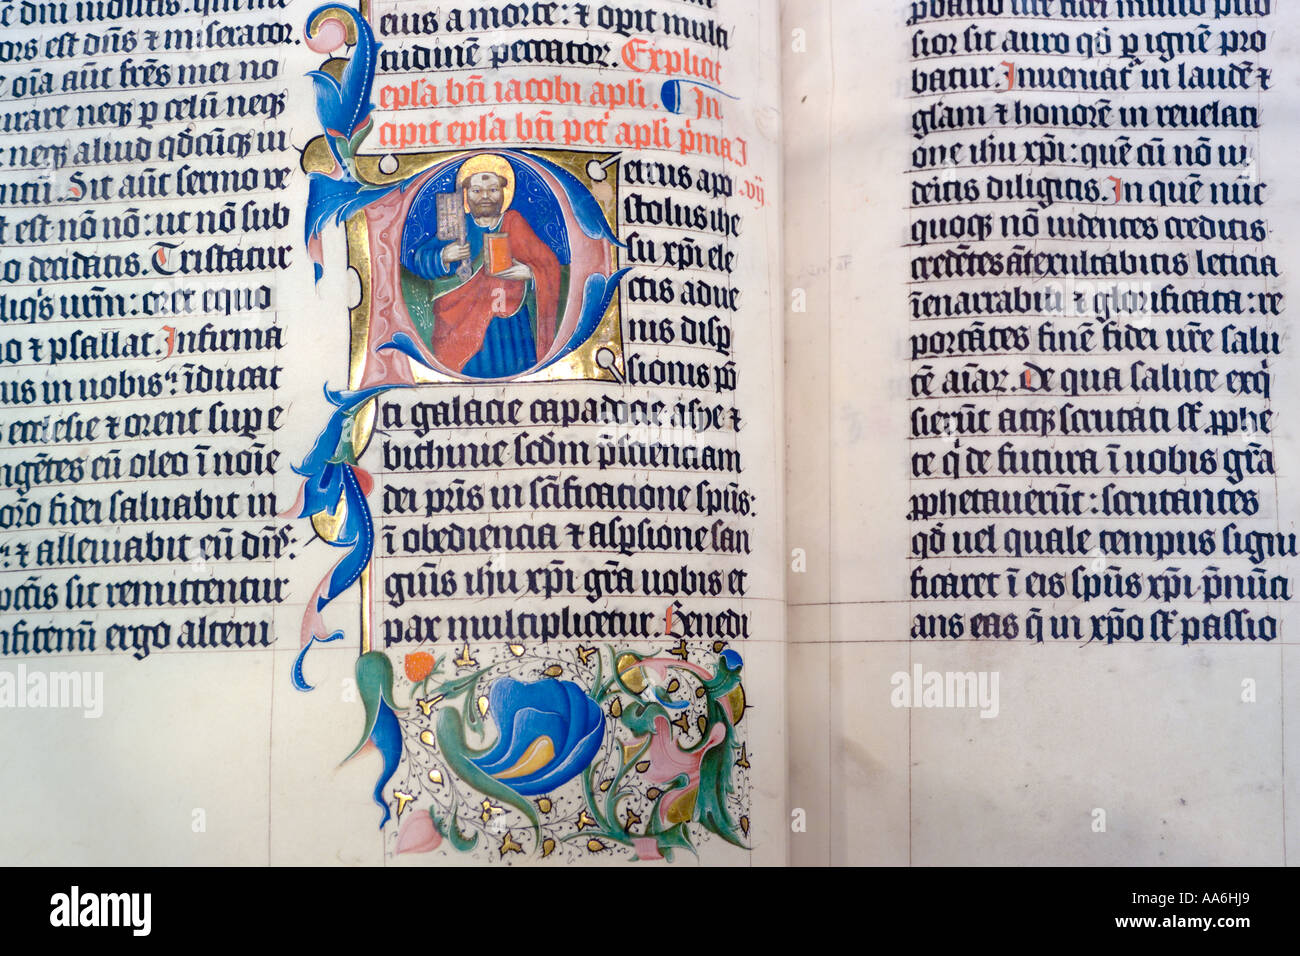 ors est dn̄s ⁊ miserator.
oīa aūt fr̄es mei no
neqꝫ ꝑ celū neqꝫ
neqꝫ aliud qd̄cūqꝫ iu
Sit aūt sermo ve
est nō nō: ut nō sub
decidatis. Tristatur
ur̄m: oret equo
⁊ psallat. Infirma
in uobis: īducat
ecclesie ⁊ orent suꝑ e
eū oleo ī noīe
fidei saluabit in
⁊ alleuiabit eū dn̄s:
sit remittentur
ergo alteru
eius a morte: ⁊ opit multi
tudinē peccator. Explicit
epl̄a bt̄i iacobi apl̄i. In
cipit epl̄a bt̄i pet̄ apl̄i p̄ma I
Petrus apo
stolus ihe
su xp̄i ele
ctis adue
nis disp̄
sionis pō
ti galacie capadocie asye ⁊
bithinie scd̄m p̄scienciam
dei pr̄is in sc̄ificatione sp̄us:
ī obediencia ⁊ asꝑsione san
guīs ihu xp̄i gr̄a uobis et
pax multiplicetur. Benedi
sior sit auro qd̄ ꝑ ignē pro
batur. Inueniat̄ in laudē ⁊
glām ⁊ honorē in reuelati
one ihu xp̄i: quē cū nō ui
deritis diligitis. In quē nūc
quoqꝫ nō uidentes creditis.
credētes āt exultabitis leticia
īenarrabili ⁊ glorificata: re
portātes finē fidei ur̄e salu
tē aīar. De qua salute exq̄
sierūt atqꝫ scrutati st̄ ꝓphe
te q̄ de futura ī uobis gr̄a
ꝓphetauerūt: scrutantes
qd̄ uel quale tempus signi
ficaret ī eis sp̄us xp̄i p̄nūci
ans eas q̄ in xp̄o st̄ passio
alamy
Image ID: A A6HJ9
www.alamy.com